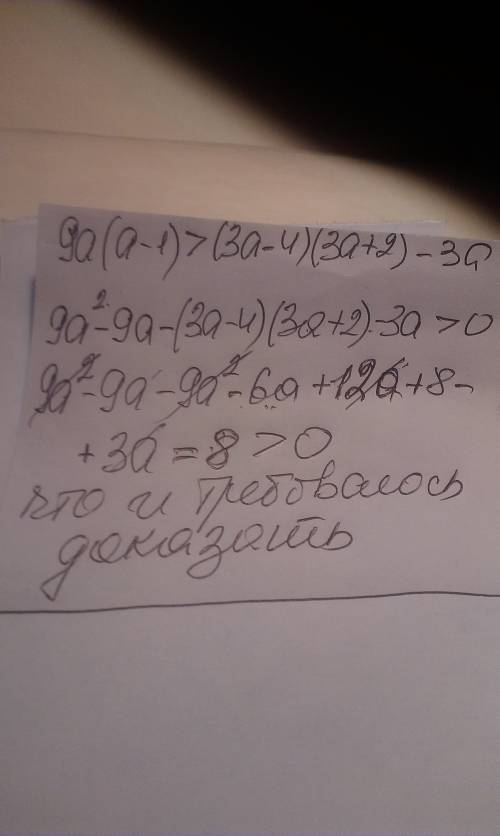 9a(a-1)>(3a-4)(3a+2)-3a
9a²-9a-(3a-4)(3a+2)-3a>0
9a²-9a-9a²-6a+12a+8-
+3a=8>0
что и требовалось
доказать